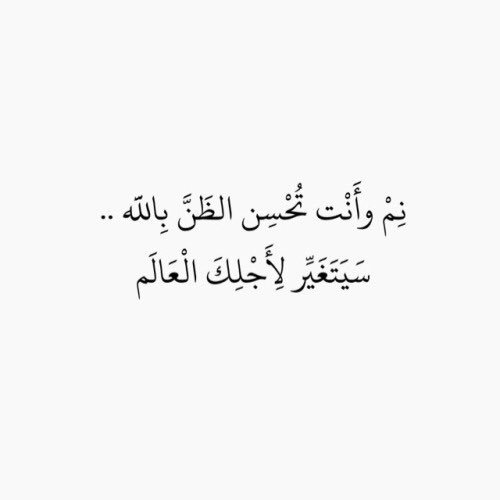 نِمْ وأَنْت تُحْسِن الظَنَّ بِاللّه ..
سَيَتَغَيِّر لِأَجْلِكَ الْعَالَم